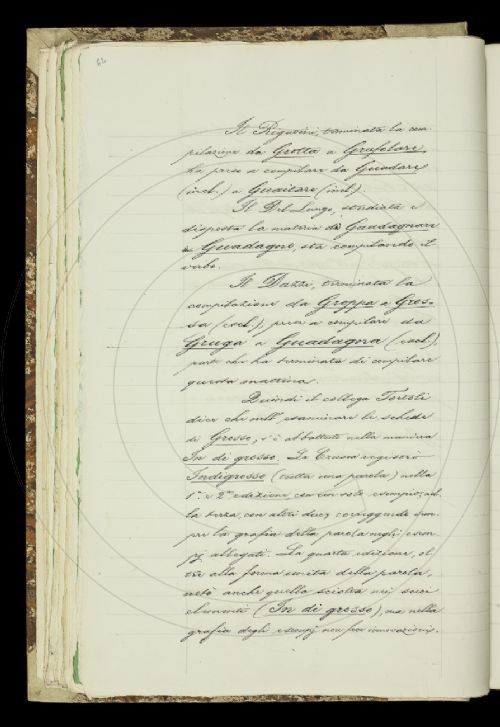 62
Il Rigutini, terminata la com-
pilazione da Grotta a Grufolare,
ha preso a compilare da Guadare
(incl.) a Guaitare (incl.).
Il Del Lungo, studiata e
disposta la materia di Guadagnare
e Guadagno, sta compilando il
verbo.
Il Dazzi, terminata la
compilazione da Groppa a Gros-
sa (escl.), prese a compilare da
Gruga a Guadagna (escl.),
parte che ha terminata di compilare
questa mattina.
Quindi il collega Tortoli
dice che nell' esaminare le schede
di Grosso, s'è abbattuto nella maniera
In di grosso. La Crusca registrò
Indigrosso (tutta una parola) nella
1ª e 2ª edizione con un solo esempio; nel-
la terza, con altri due; correggendo sem-
pre la grafia della parola negli esem-
pj allegati. La quarta edizione, ol-
tre alla forma unita della parola,
notò anche quella sciolta nei suoi
elementi (In di grosso), ma nella
grafia degli esempj non fece innovazioni.